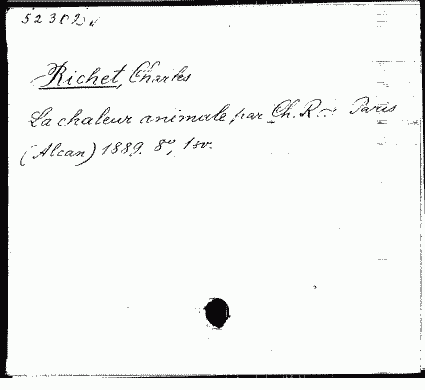 52302
Richet, Charles
La chaleur animale, par Ch. R... Paris
(Alcan) 1889. 8º, 1 v.